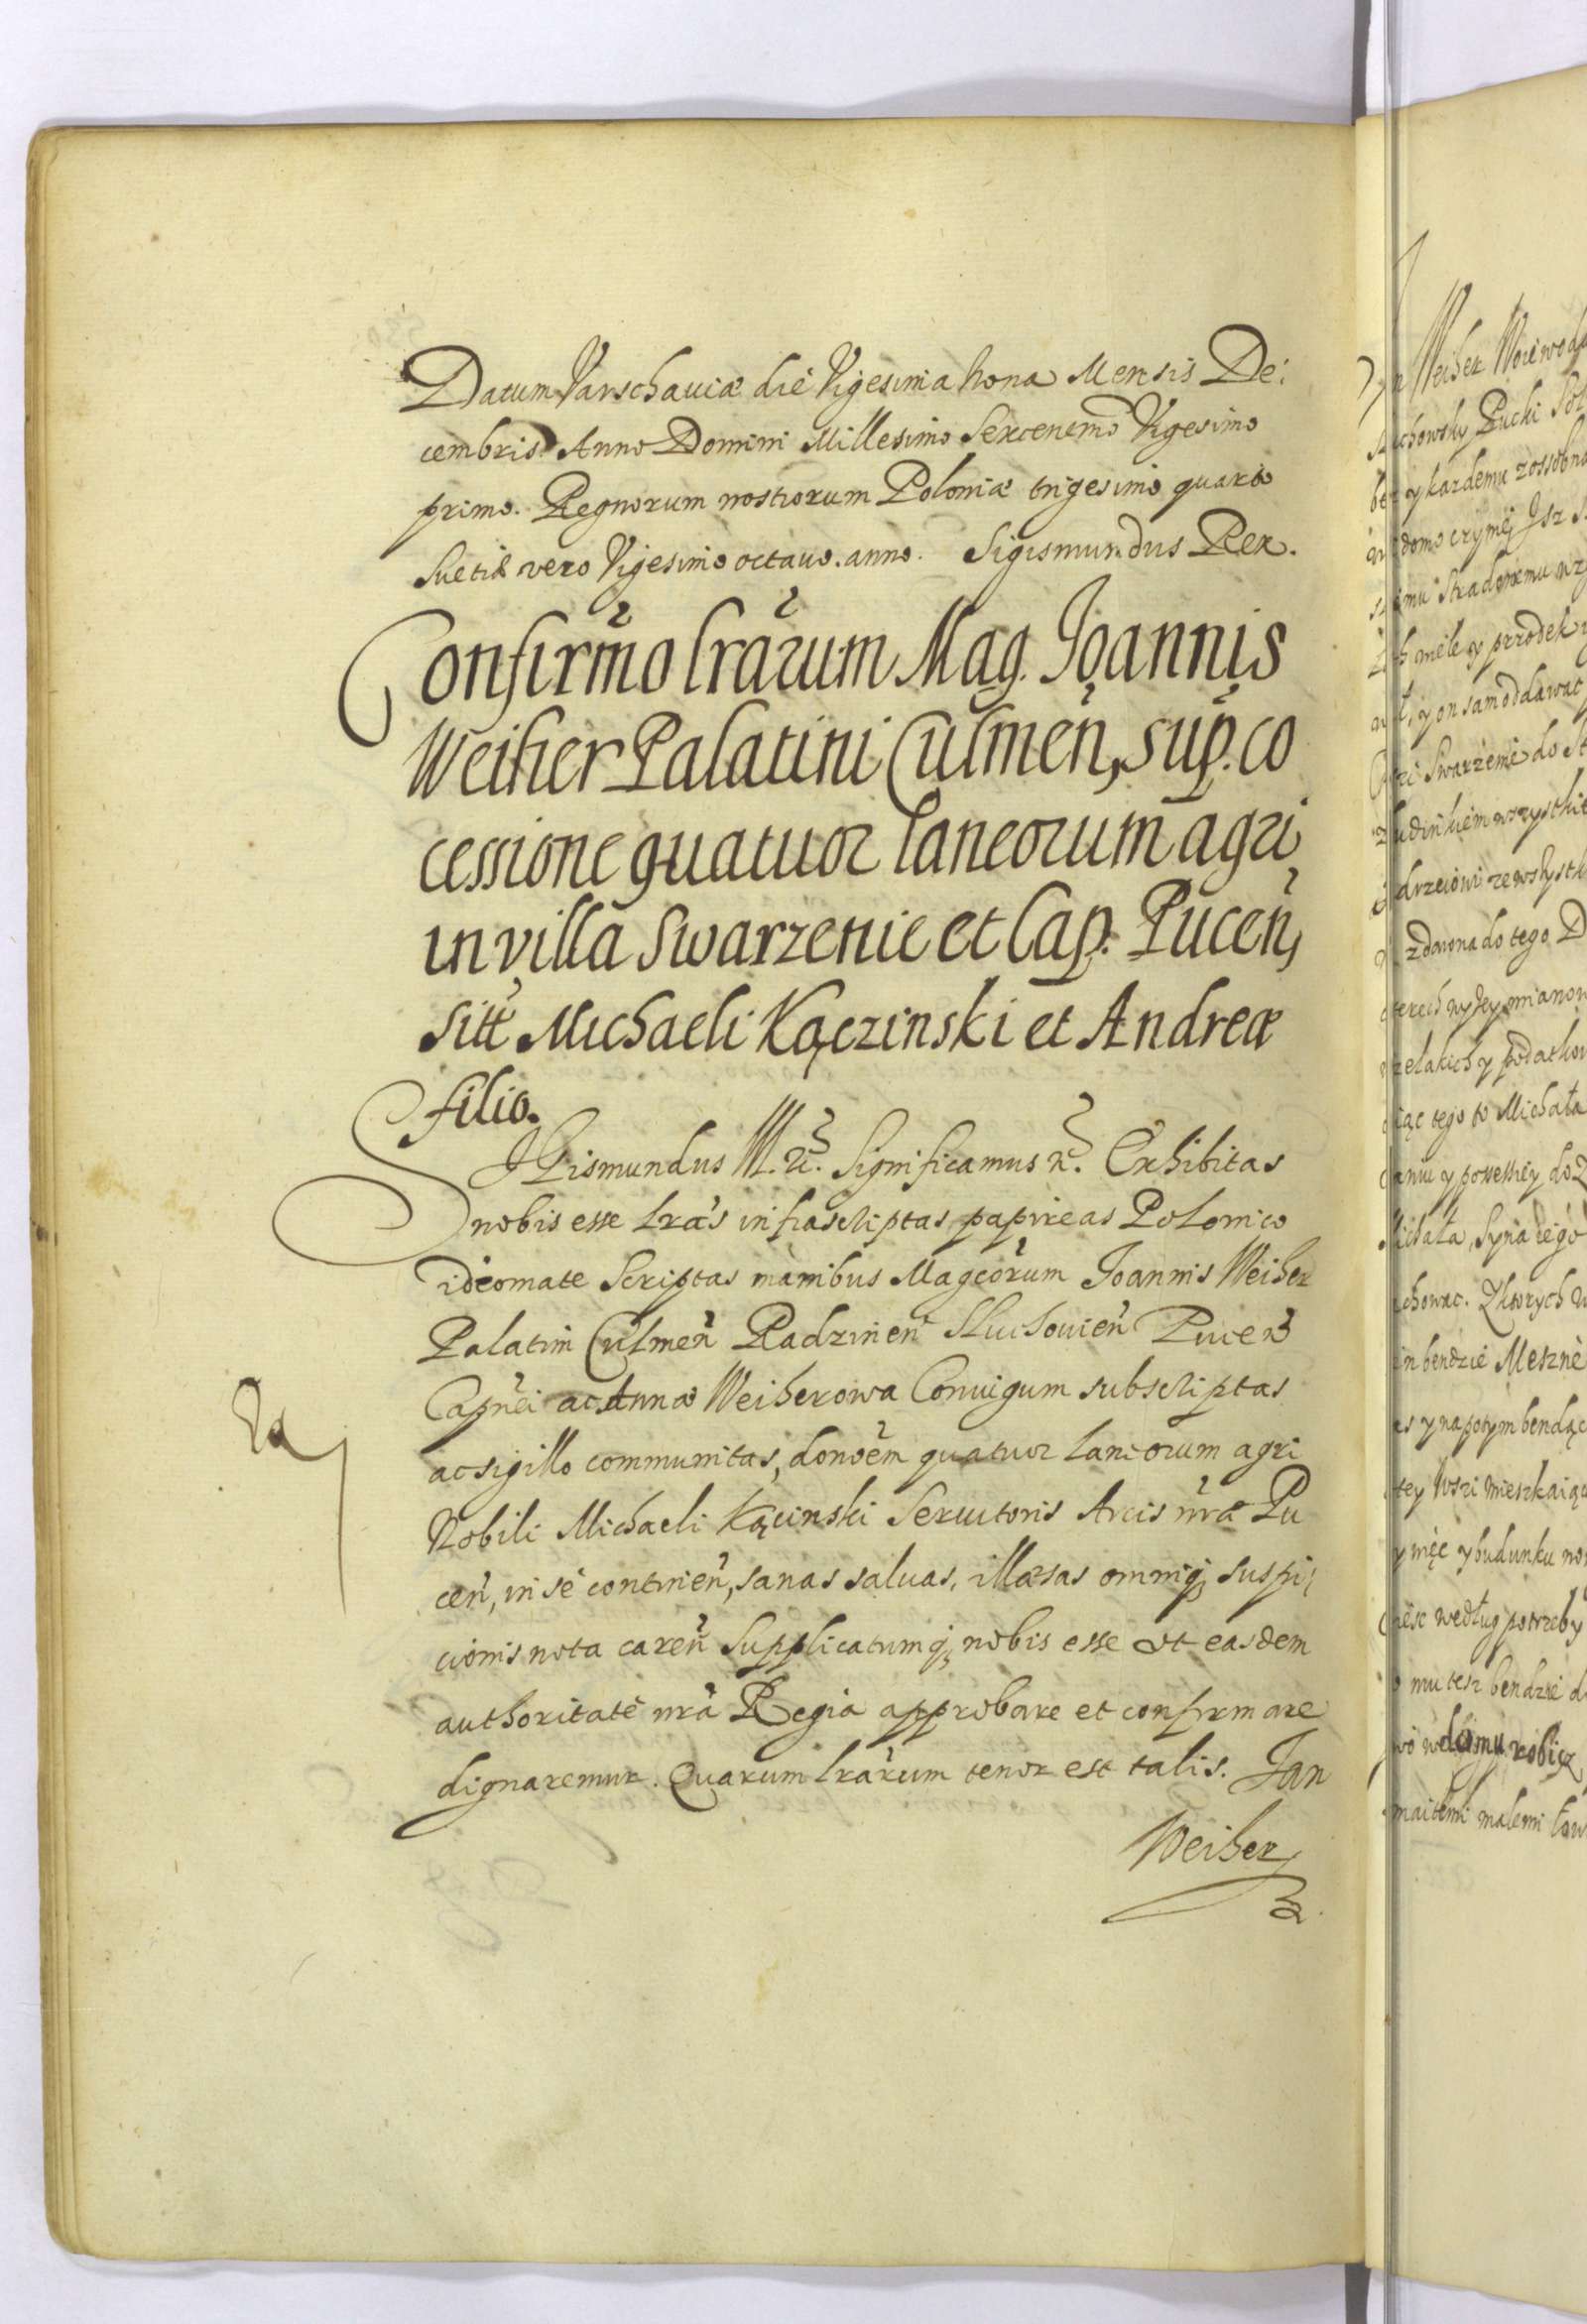 Datum Varschauiæ die Vigesima nona Mensis De:
cembris Anno Domini Millesimo Sexcentmo Vigesimo
primo. Regnorum nostrorum Poloniæ trigesimo quarto
Suetiæ vero Vigesimo octauo. anno. Sigismundus Rex.
Confirmo lrarum Mag. Joannis
Weiher Palatini Culmen, sup. co
cessione quatuor laneorum agri
in villa Swarzenie et Cap. Pucen,
sitt Michaeli Kączinski et Andreæ
filio.
SIGismundus III. Significamus Exhibitas
nobis esse lras infrascriptas papireas Polonico
ideomate Scriptas manibus Magcorum Joannis Weiher
Palatini Culmen Radzinen Sluchouien Pucen
Capnei ac Annæ Weiherowa Conuigum subscriptas
ac sigillo communitas, donoem quatuor laneorum agri
Nobili Michaeli Kącinski Seruitoris Arcis nræ Pu
cen, in se continen, sanas saluas, illæsas omniq suspi
cionis nota caren Supplicatumq nobis esse ut easdem
authoritate nra Regia approbare et confirmare
dignaremur. Quarum lrarum tenor est talis. Jan
Weiher
Weiher Woiewoda
Pucki
y kazdemu zossobna
Stradomemu
mile y przodek
y on sam oddawac
Swarzenie do
wszystki
zdawna do tego D
wyżey mianow
y podatkow
tego to Michała
y possessiey do
Michała, Syna iego
chowac. Ktorych
bendzie Meszne
y napotym bendąc
tey Wsi mieszkaiąc
y budunku
według potrzeby
mu tesz bendzie
domu robicz
malemi